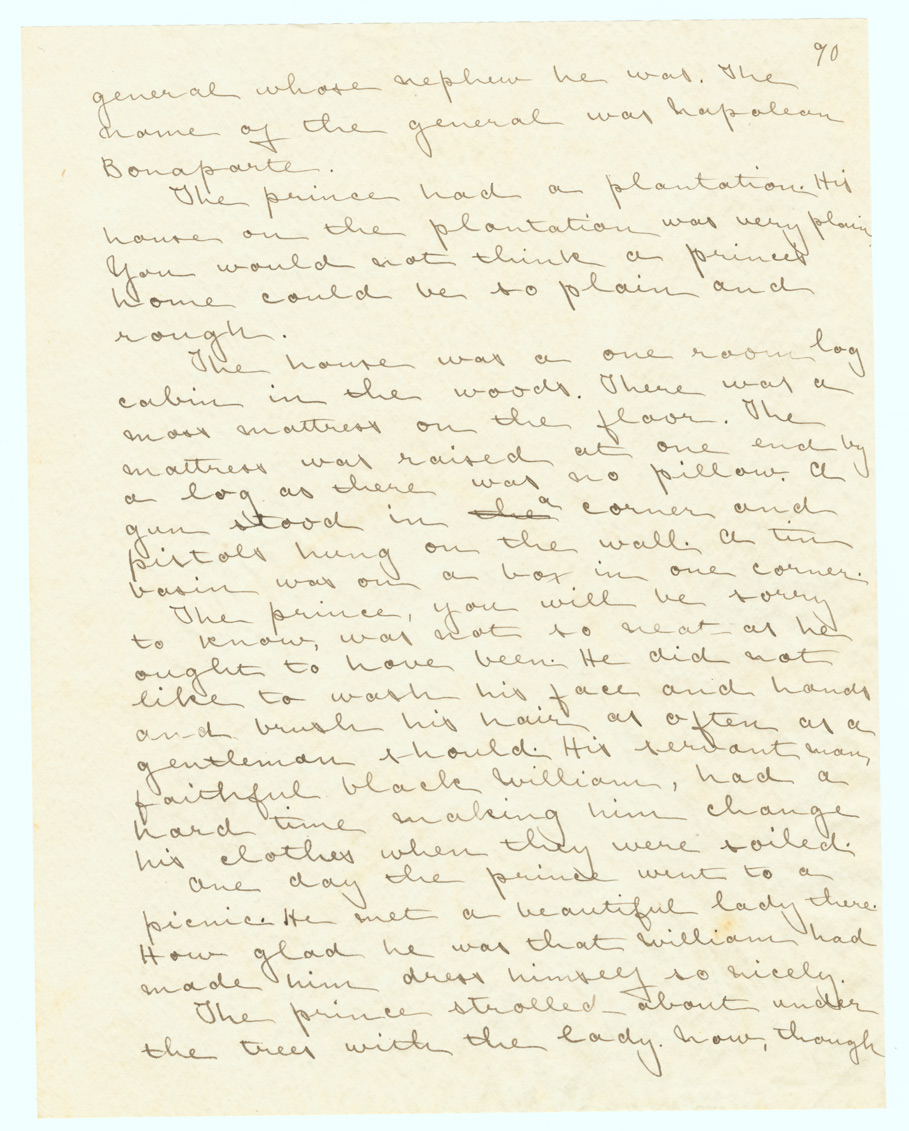 90
general whose nephew he was. The
name of the general was Napolean
Bonaparte.
The prince had a plantation. His
house on the plantation was very plain.
You would not think a prince's
home could be so plain and
rough.
The house was a one room log
cabin in the woods. There was a
moss mattress on the floor. The
mattress was raised at one end by
a log as there was no pillow. A
gun stood in the a corner and
pistols hung on the wall. A tin
basin was on a box in one corner.
The prince, you will be sorry
to know, was not so neat as he
ought to have been. He did not
like to wash his face and hands
and brush his hair as often as a
gentleman should. His servant man,
faithful black William, had a
hard time making him change
his clothes when they were soiled.
One day the prince went to a
picnic. He met a beautiful lady there.
How glad he was that William had
made him dress himself so nicely.
The prince strolled about under
the trees with the lady. Now, though